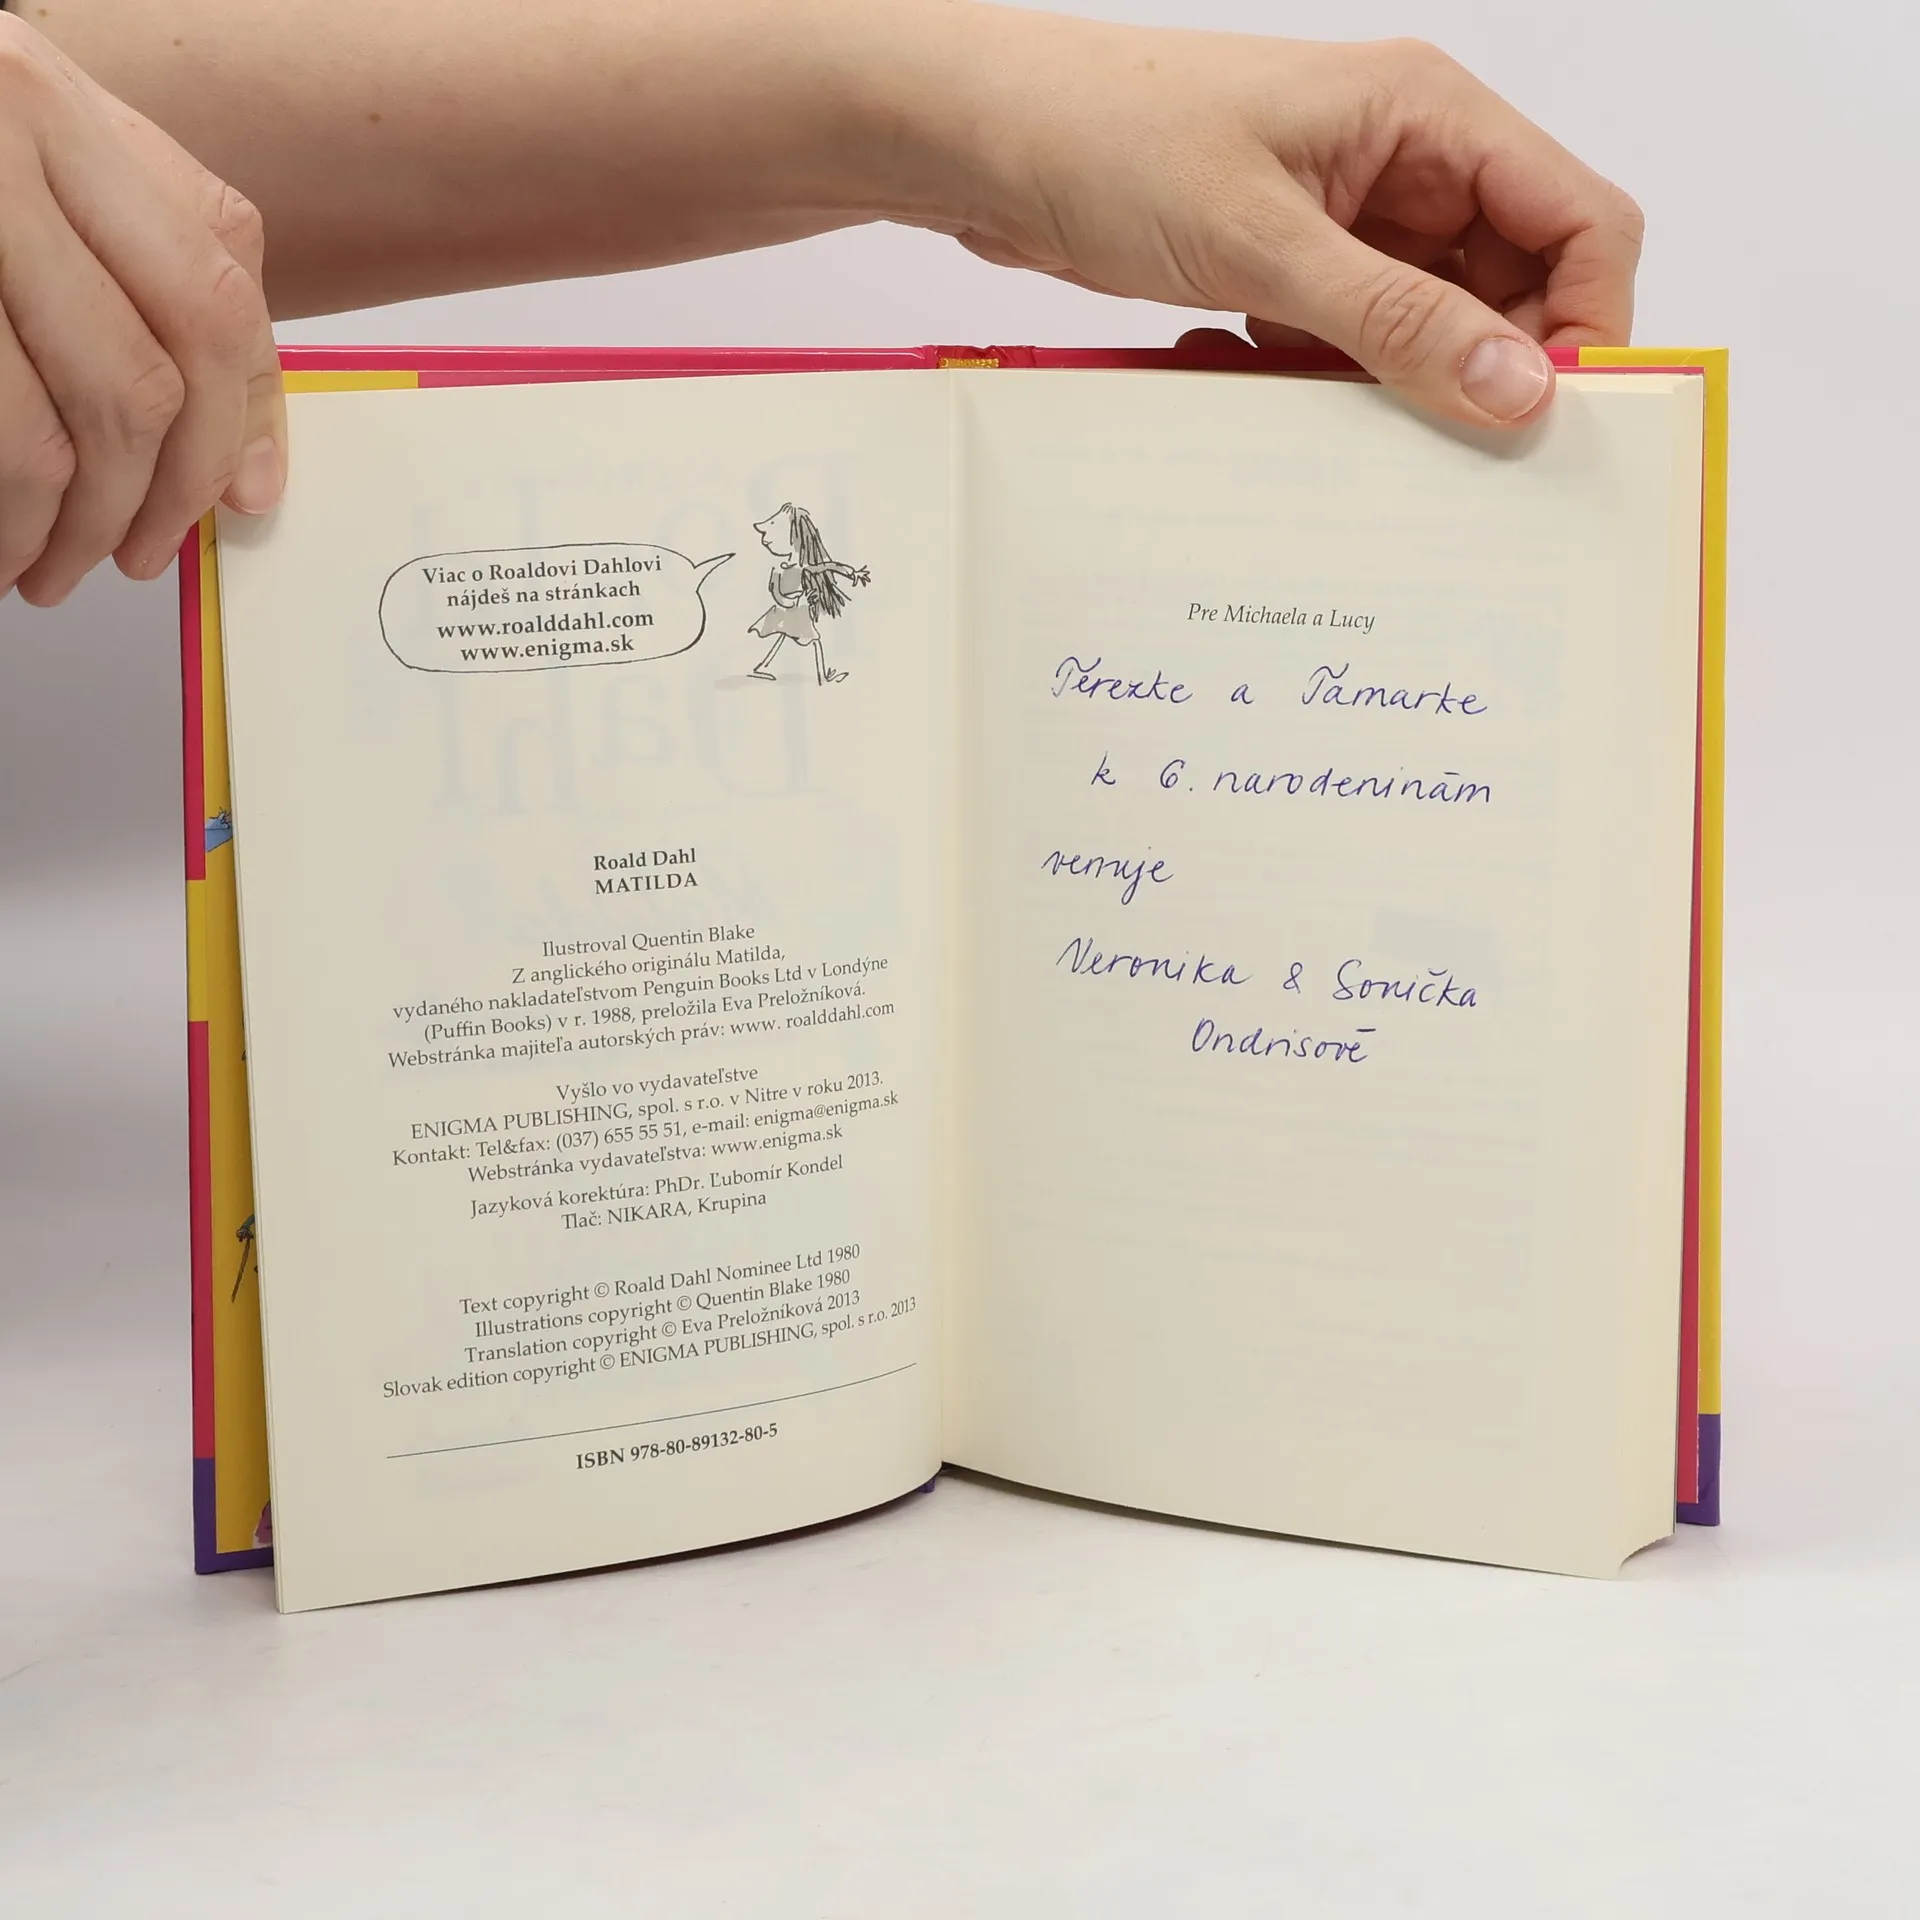 Viac o Roaldovi Dahlovi
nájdeš na stránkach
www.roalddahl.com
www.enigma.sk
Roald Dahl
MATILDA
Ilustroval Quentin Blake
Z anglického originálu Matilda,
vydaného nakladateľstvom Penguin Books Ltd v Londýne
(Puffin Books) v r. 1988, preložila Eva Preložníková.
Webstránka majiteľa autorských práv: www. roalddahl.com
Vyšlo vo vydavateľstve
ENIGMA PUBLISHING, spol. s r.o. v Nitre v roku 2013.
Kontakt: Tel&fax: (037) 655 55 51, e-mail: enigma@enigma.sk
Webstránka vydavateľstva: www.enigma.sk
Jazyková korektúra: PhDr. Ľubomír Kondel
Tlač: NIKARA, Krupina
Text copyright © Roald Dahl Nominee Ltd 1980
Illustrations copyright © Quentin Blake 1980
Translation copyright © Eva Preložníková 2013
Slovak edition copyright © ENIGMA PUBLISHING, spol. s r.o. 2013
ISBN 978-80-89132-80-5
Pre Michaela a Lucy
Terezke a Tamarke
k 6. narodeninám
venuje
Veronika & Sonička
Ondrisové